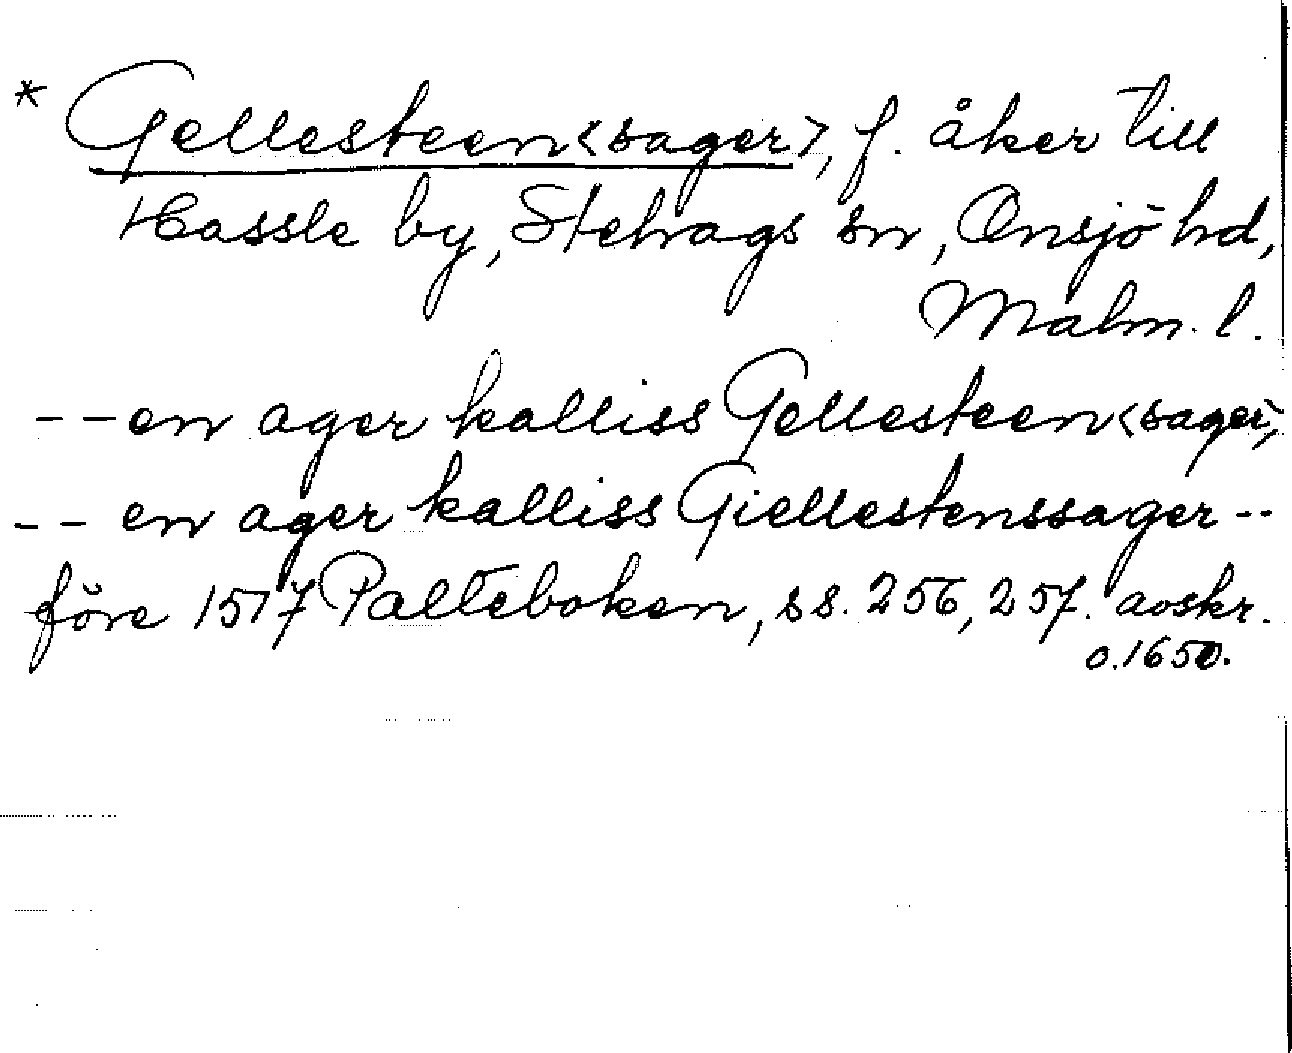 * Gellesteen<sager>, f. åker till
Hassle by, Stehags sn, Onsjö hd,
Malm. l.
-- en ager kalliss Gellesteen<sager>,
-- en ager kalliss Giellestenssager --
före 1517 Palteboken, ss. 256, 257. avskr.
o. 1650.